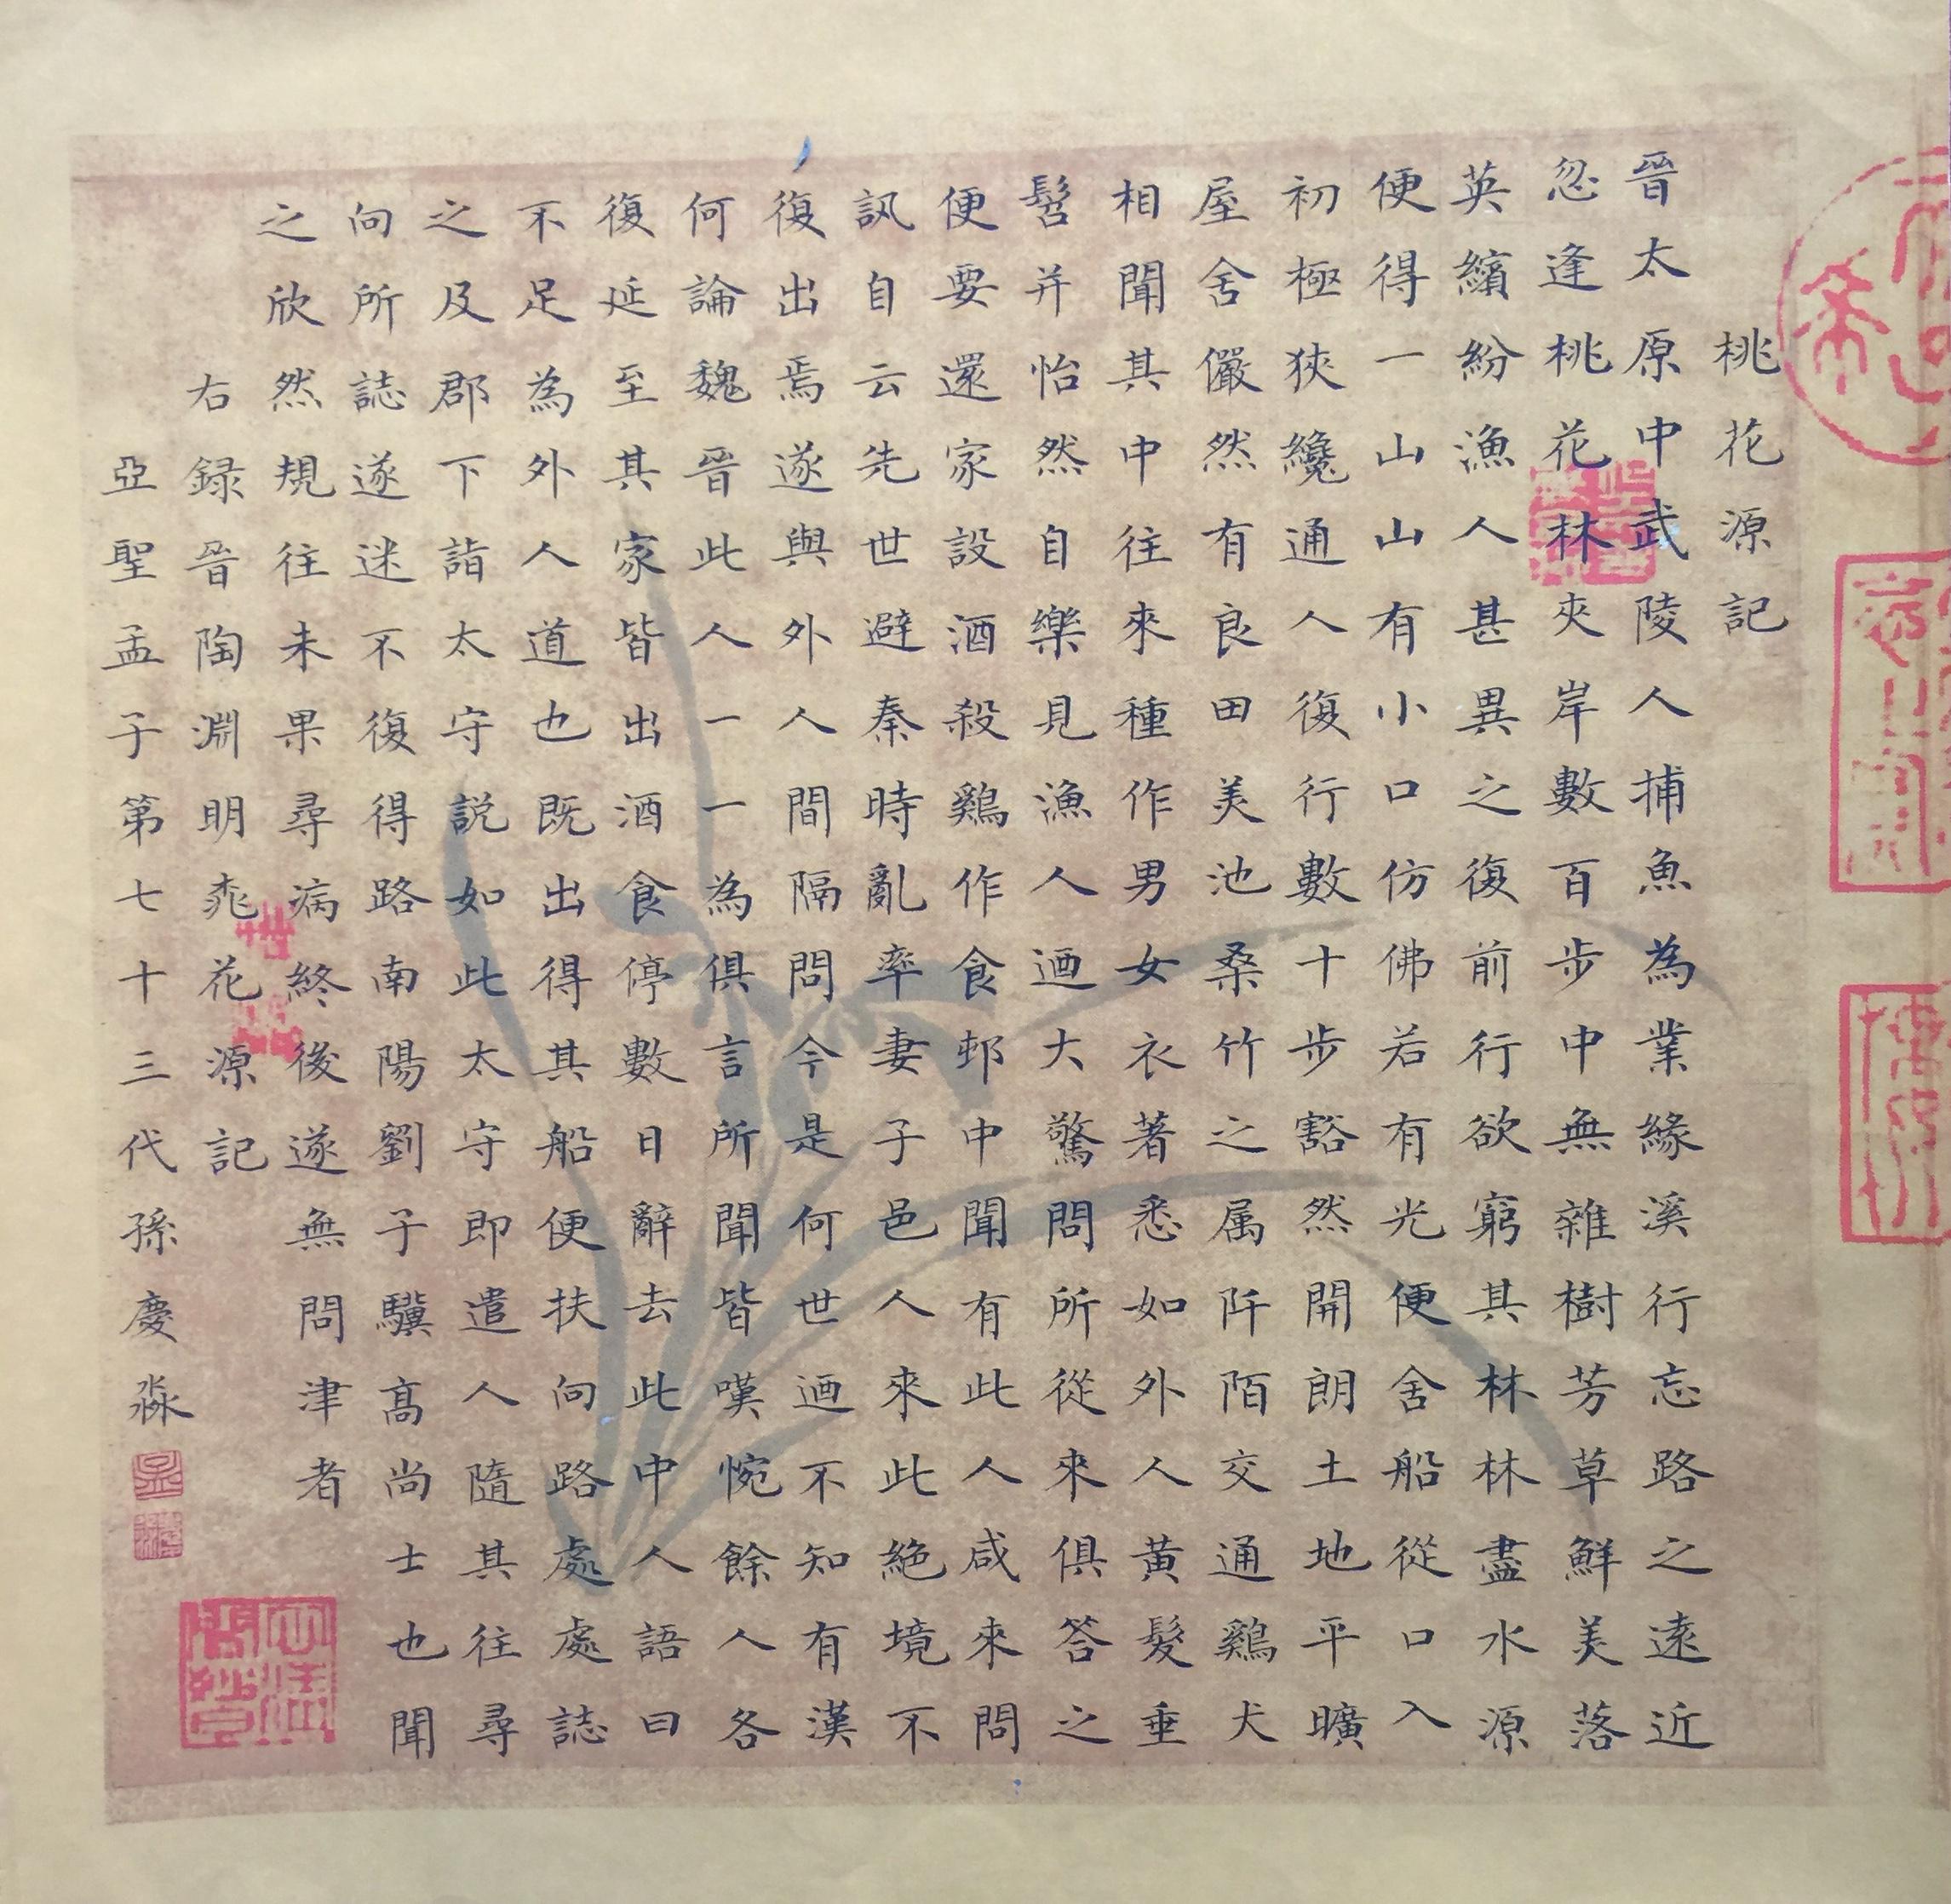 桃花源記
晉太原中武陵人捕魚為業緣溪行忘路之遠近
忽逢桃花林夾岸數百步中無雜樹芳草鮮美落
英繽紛漁人甚異之復前行欲窮其林林盡水源
便得一山山有小口仿佛若有光便舍船從口入
初極狹纔通人復行數十步豁然開朗土地平曠
屋舍儼然有良田美池桑竹之属阡陌交通鷄犬
相聞其中往來種作男女衣著悉如外人黃髮垂
髫并怡然自樂見漁人迺大驚問所從來俱答之
便要還家設酒殺鷄作食邨中聞有此人咸來問
訊自云先世避秦時亂率妻子邑人來此絶境不
復出焉遂與外人間隔問今是何世迺不知有漢
何論魏晉此人一一為俱言所聞皆嘆惋餘人各
復延至其家皆出酒食停數日辭去此中人語曰
不足為外人道也既出得其船便扶向路處處誌
之及郡下詣太守説如此太守即遣人隨其往尋
向所誌遂迷不復得路南陽劉子驥髙尚士也聞
之欣然規往未果尋病終後遂無問津者
右録晉陶淵明桃花源記
亞聖孟子第七十三代孫慶淼